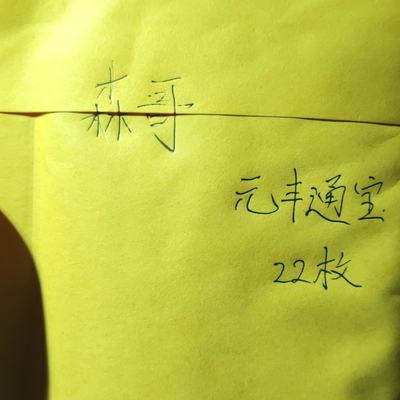 森哥
元丰通宝
22枚